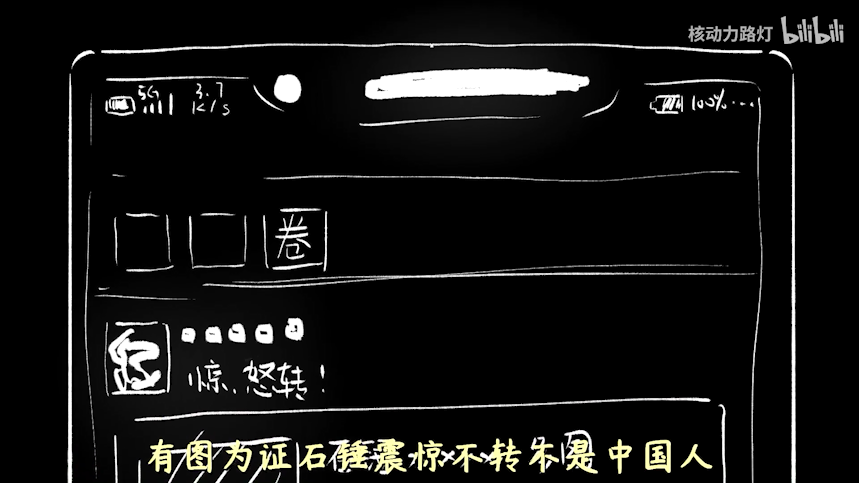 核动力路灯 bilibili
5G 3.7 K/s 100%...
卷
惊,怒转!
有图为证石锤震惊不转不是中国人